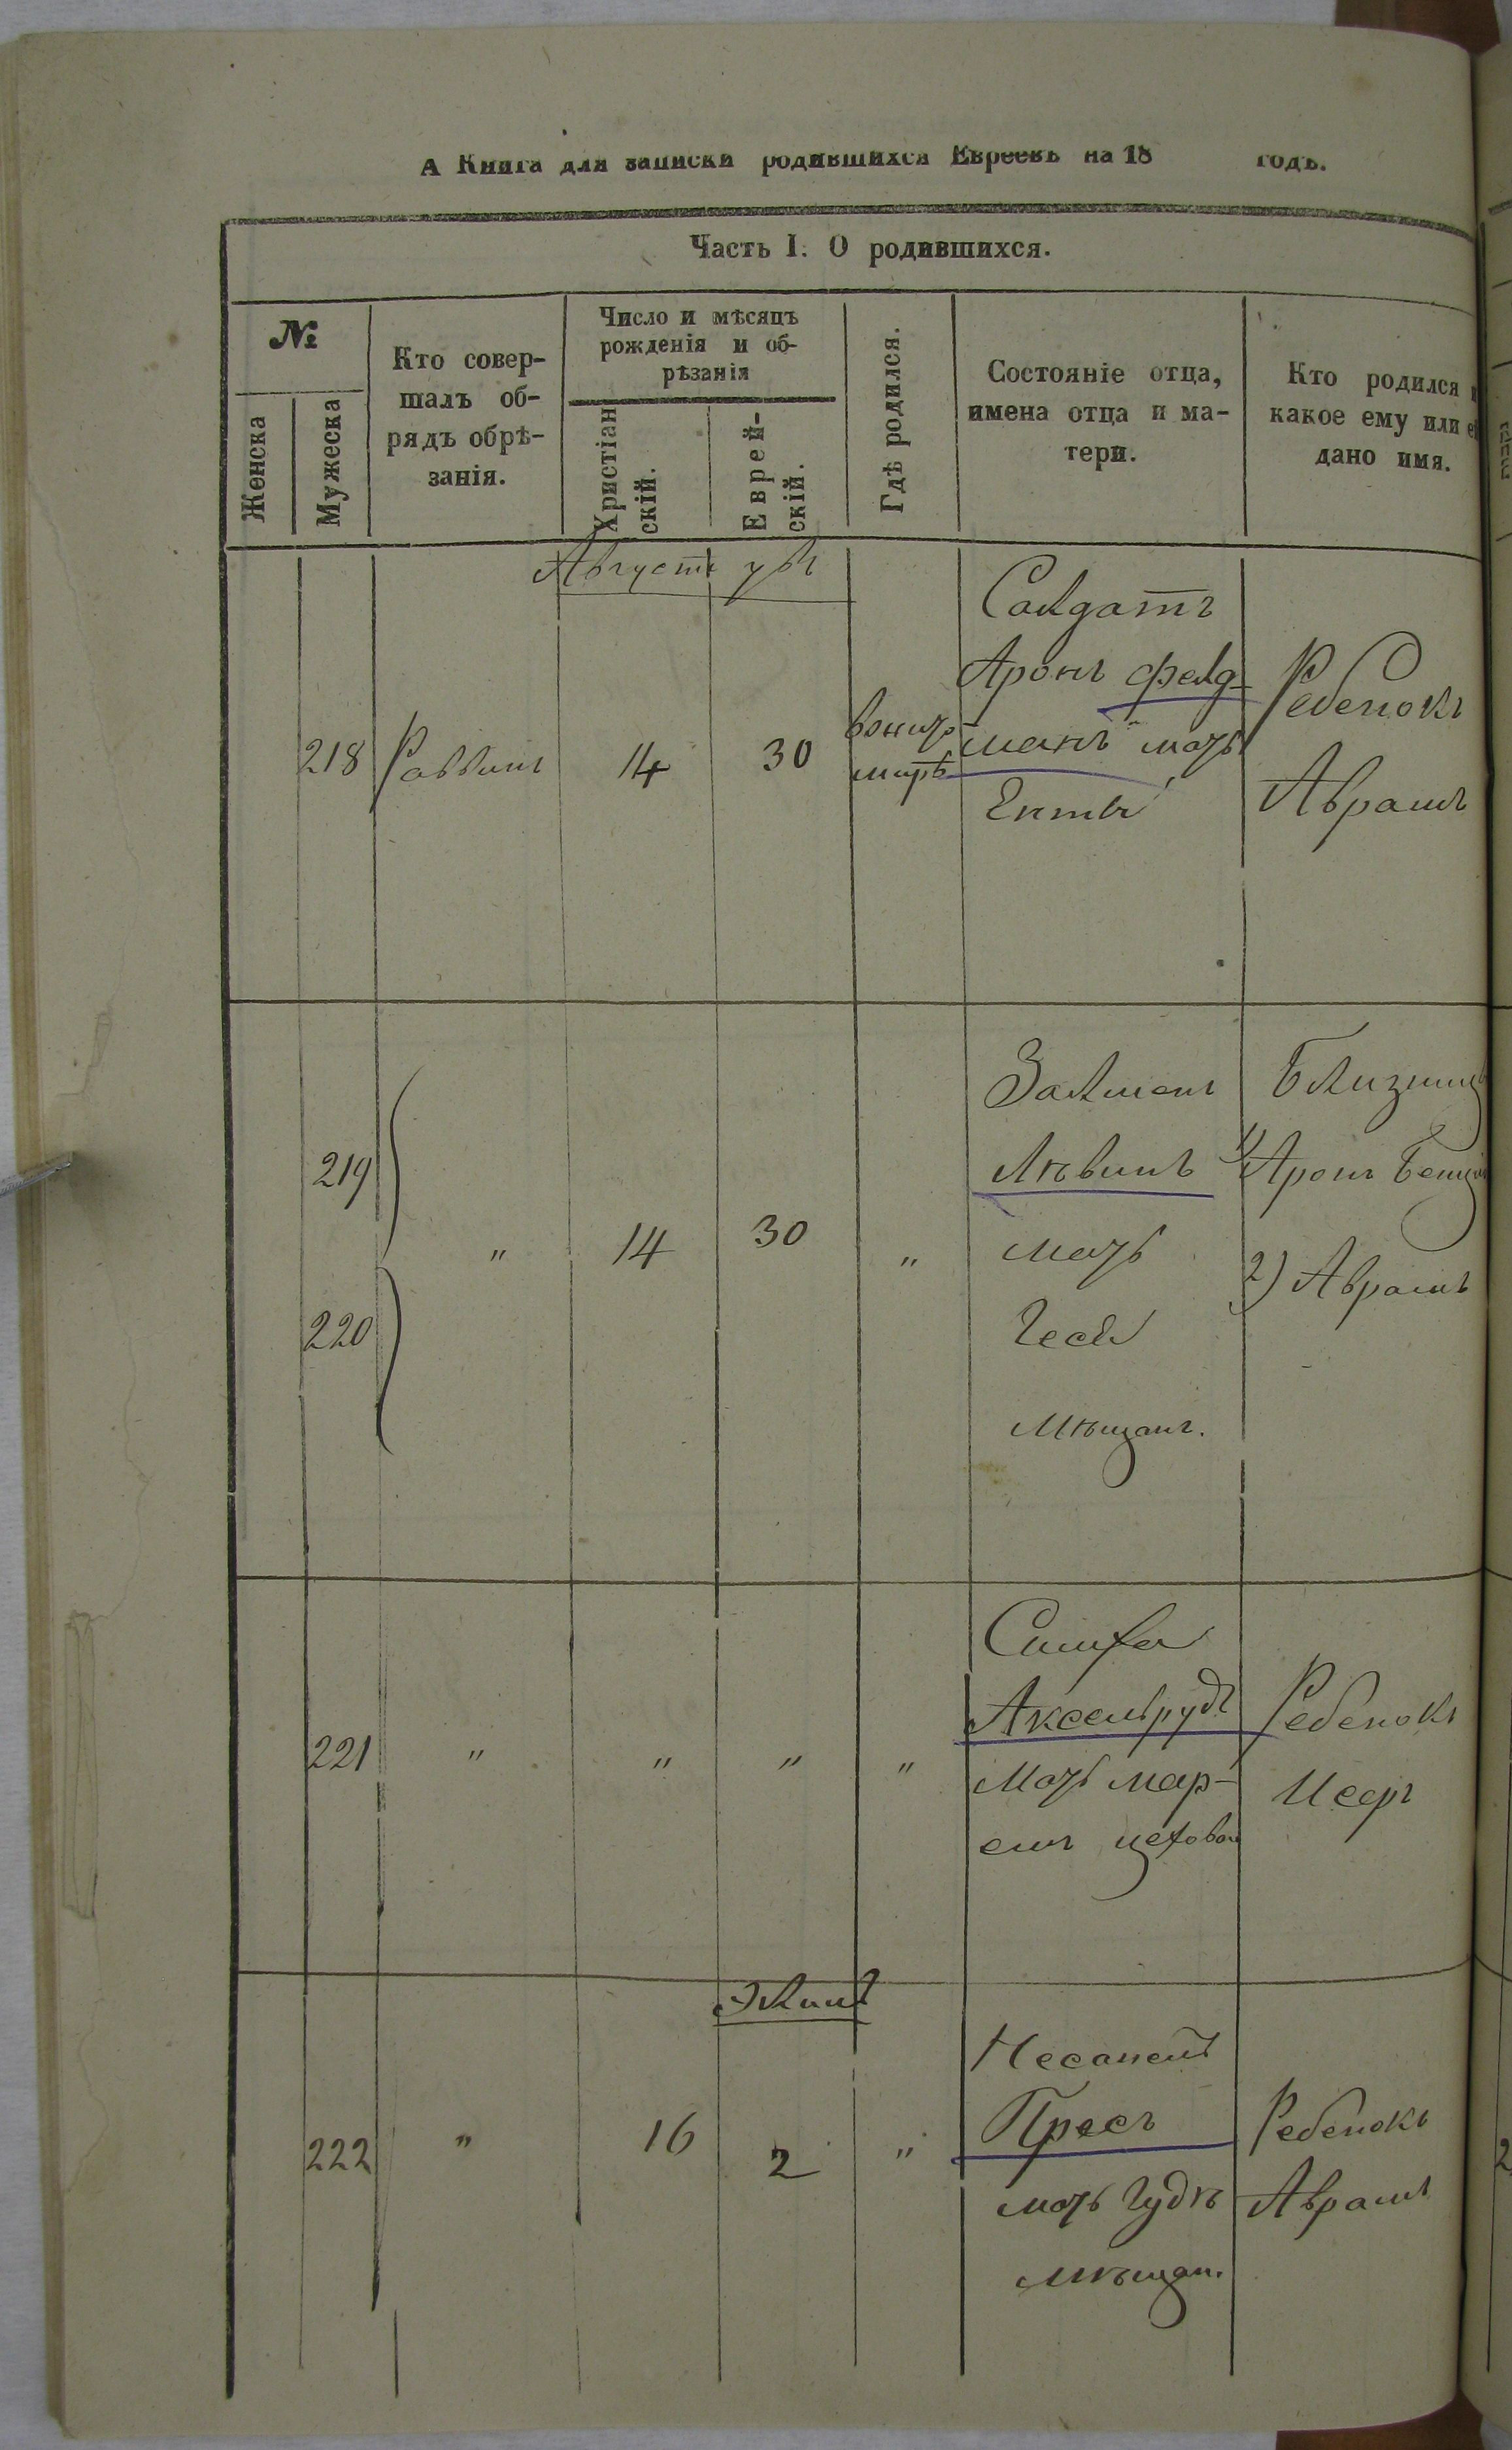 А Книга для записки родившихся Евреевъ на 18 годъ.
Часть I. О родившихся.
№
Женска
Мужеска
Кто совер-
шалъ об-
рядъ обрѣ-
занія.
Число и мѣсяцъ
рожденія и об-
рѣзанія
Христіан
скій.
Еврей-
скій.
Гдѣ родился.
Состояніе отца,
имена отца и ма-
тери.
Кто родился
какое ему или
дано имя.
Августъ
218
Раввинъ
14
30
Солдатъ
Аронъ Фелд-
манъ мать
Ента
Ребенокъ
Абрамъ
219
220
"
14
30
"
Залманъ
Лѣвинъ
мать
Геся
мѣщан.
Близнец
1) Аронъ
2) Абрамъ
221
"
"
"
"
Симха
Аксельрудъ
Мать
цехово
Ребенокъ
222
"
16
Элюлъ
2
"
Пресъ
мать Гудѣ
мѣщан.
Ребенокъ
Абрамъ